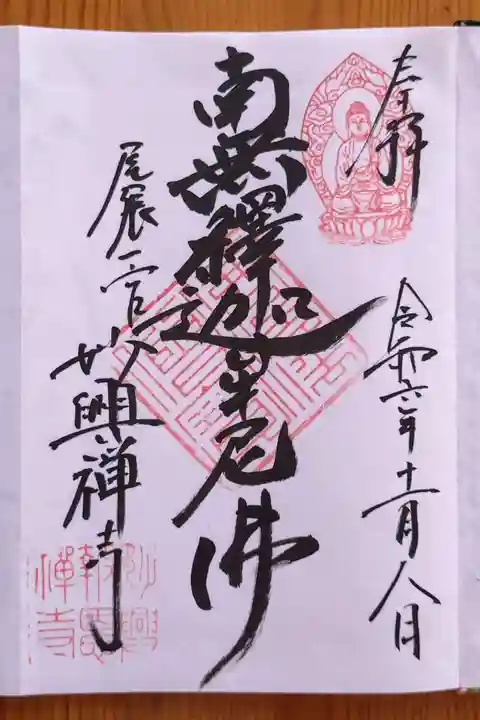 奉拝
令和六年十一月八日
南無釋迦牟尼佛
尾張一宮
妙興禅寺
妙興
報恩
禅寺